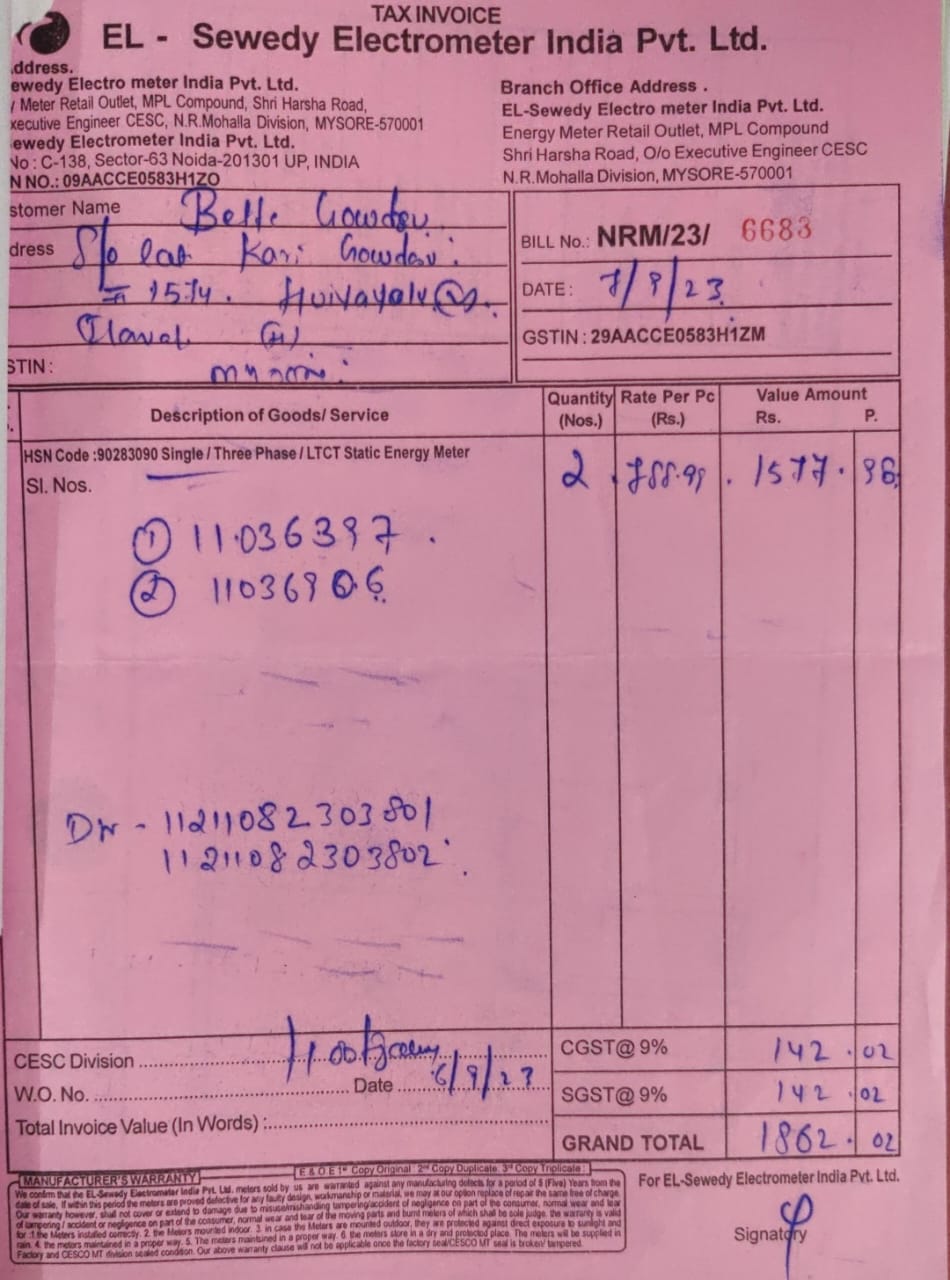 TAX INVOICE
EL - Sewedy Electrometer India Pvt. Ltd.
ddress.
ewedy Electro meter India Pvt. Ltd.
/ Meter Retail Outlet, MPL Compound, Shri Harsha Road,
xecutive Engineer CESC, N.R.Mohalla Division, MYSORE-570001
ewedy Electrometer India Pvt. Ltd.
No : C-138, Sector-63 Noida-201301 UP, INDIA
N NO.: 09AACCE0583H1ZO
Branch Office Address .
EL-Sewedy Electro meter India Pvt. Ltd.
Energy Meter Retail Outlet, MPL Compound
Shri Harsha Road, O/o Executive Engineer CESC
N.R.Mohalla Division, MYSORE-570001
stomer Name Belle Gowda
dress S/o Kari Gowda
1574.
STIN :
BILL No.: NRM/23/ 6683
DATE : 7/9/23
GSTIN : 29AACCE0583H1ZM
Description of Goods/ Service Quantity (Nos.) Rate Per Pc (Rs.) Value Amount Rs. P.
HSN Code :90283090 Single / Three Phase / LTCT Static Energy Meter 2 788.99 1577. 98
Sl. Nos.
① 11036397.
② 11036906
- 11211082303801
11211082303802
CESC Division
W.O. No. Date 6/9/23
Total Invoice Value (In Words) :
CGST@ 9% 142.02
SGST@ 9% 142.02
GRAND TOTAL 1862.02
E & O E 1st Copy Original 2nd Copy Duplicate 3rd Copy Triplicate
MANUFACTURER'S WARRANTY
We confirm that the EL-Sewedy Electrometer India Pvt. Ltd. meters sold by us are warranted against any manufacturing defects for a period of 5 (Five) Years from the
date of sale. If within this period the meters are proved defective for any faulty design, workmanship or material, we may at our option replace of repair the same free of charge.
Our warranty however, shall not cover or extend to damage due to misuse/mishandling tampering/accident of negligence on part of the consumer, normal wear and tear
of tampering / accident or negligence on part of the consumer, normal wear and tear of the moving parts and burnt meters of which shall be sole judge. the warranty is valid
for :1 the Meters installed correctly. 2. the Meters mounted indoor. 3. in case the Meters are mounted outdoor, they are protected against direct exposure to sunlight and
rain. 4. the meters maintained in a proper way. 5. The meters maintained in a proper way. 6. the meters store in a dry and protected place. The meters will be supplied in
Factory and CESCO MT division sealed condition. Our above warranty clause will not be applicable once the factory seal/CESCO MT seal is broken/ tampered.
For EL-Sewedy Electrometer India Pvt. Ltd.
Signatory